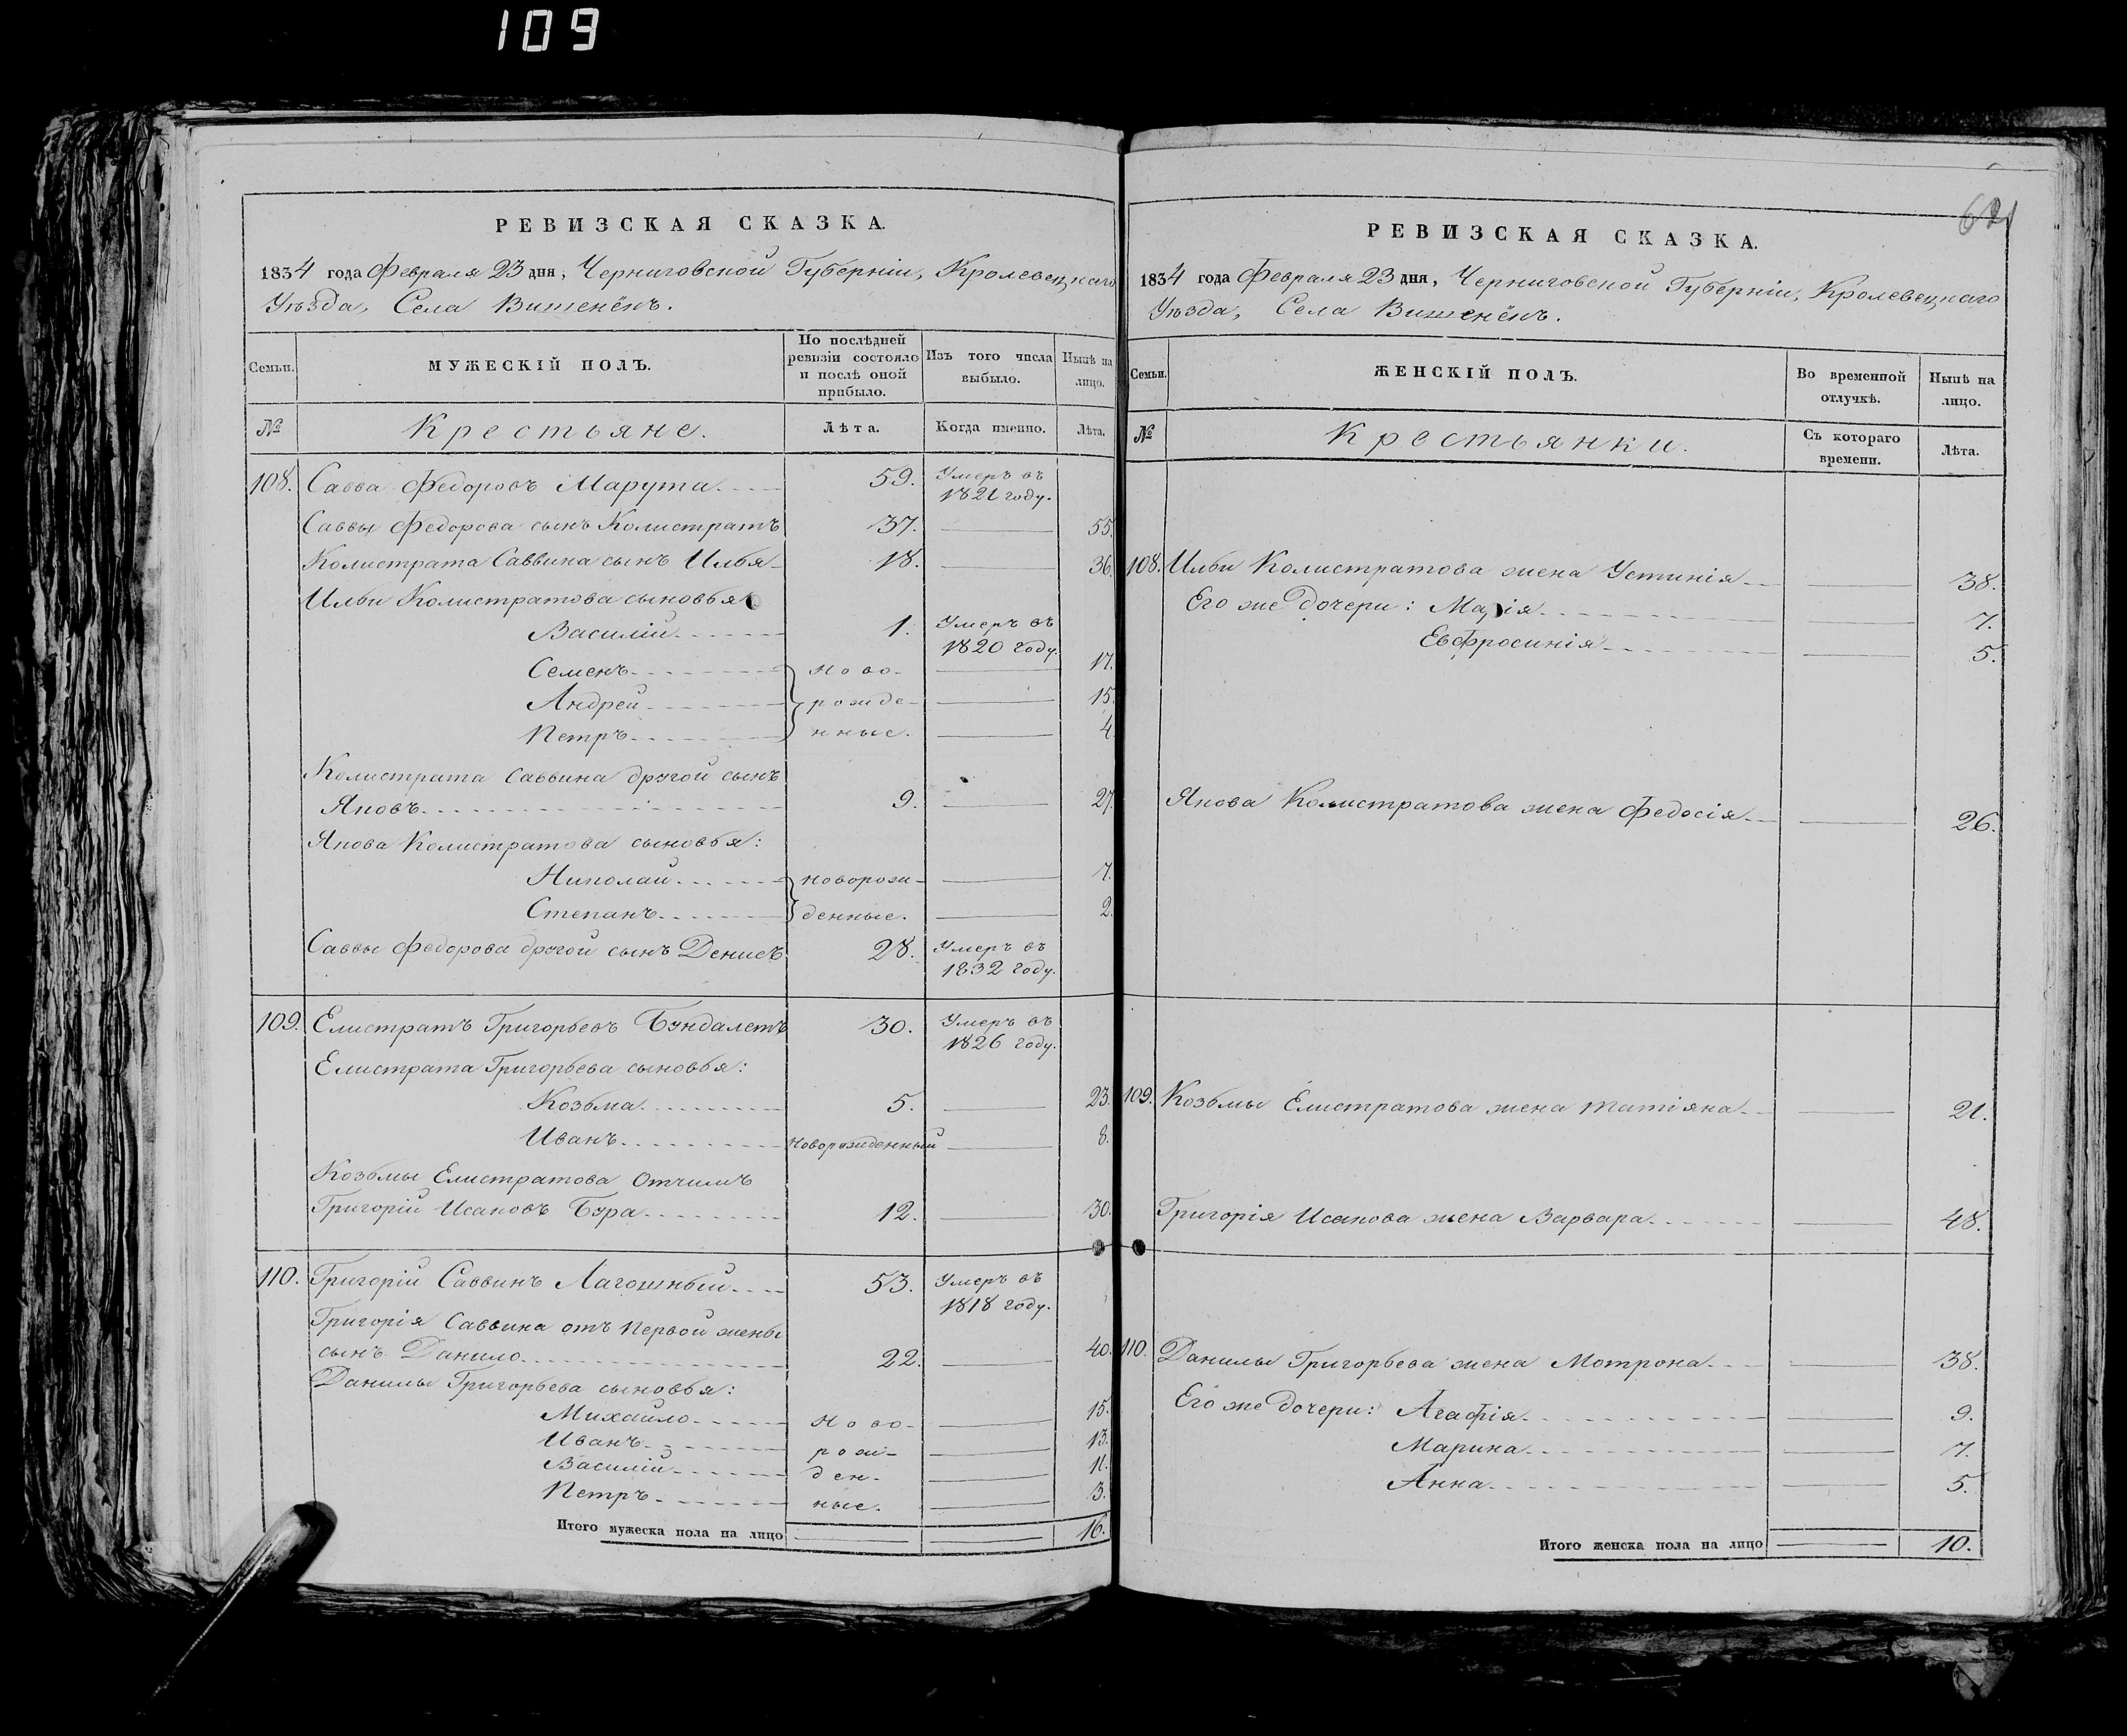 109
РЕВИЗСКАЯ СКАЗКА.
1834 года Февраля 23 дня, Черниговской Губерніи, Кролевецкаго
Уѣзда, Села Вишенёкъ.
Семьи. МУЖЕСКІЙ ПОЛЪ. По послѣдней ревизіи состояло и послѣ оной прибыло. Изъ того числа выбыло. Нынѣ на лицо.
№ Крестьяне. Лѣта. Когда именно. Лѣта.
108. Савва Федоровъ Марута 59. Умеръ въ 1821 году.
Саввы Федорова сынъ Колистратъ 37. 55.
Колистрата Саввина сынъ Илья 18. 36.
Ильи Колистратова сыновья
Василій 1. Умеръ въ 1820 году.
Семенъ ново- 17.
Андрей рожде- 15.
Петръ нные. 4.
Колистрата Саввина другой сынъ
Яковъ 9. 27.
Якова Колистратова сыновья:
Николай новорож- 7.
Степанъ денные. 2.
Саввы Федорова другой сынъ Денисъ 28. Умеръ въ 1832 году.
109. Елистратъ Григорьевъ Бундалетъ 30. Умеръ въ 1826 году.
Елистрата Григорьева сыновья:
Козьма 5. 23.
Иванъ Новорожденный 8.
Козьмы Елистратова Отчимъ
Григорій Исаковъ Бура 12. 30.
110. Григорій Саввинъ Лагошный 53. Умеръ въ 1818 году.
Григорія Саввина отъ Первой жены
сынъ Данило 22. 40.
Данилы Григорьева сыновья:
Михайло Ново- 15.
Иванъ рож- 13.
Василій ден- 11.
Петръ ные. 3.
Итого мужеска пола на лицо 16.
РЕВИЗСКАЯ СКАЗКА.
1834 года Февраля 23 дня, Черниговской Губерніи, Кролевецкаго
Уѣзда, Села Вишенёкъ.
Семьи. ЖЕНСКІЙ ПОЛЪ. Во временной отлучкѣ. Нынѣ на лицо.
№ Крестьянки. Съ котораго времени. Лѣта.
108. Ильи Колистратова жена Устинія 38.
Его же дочери: Марія 7.
Евфросинія 5.
Якова Колистратова жена Федосія 26.
109. Козьмы Елистратова жена Татіяна 21.
Григорія Исакова жена Варвара 48.
110. Данилы Григорьева жена Мотрона 38.
Его же дочери: Агафія 9.
Марина 7.
Анна 5.
Итого женска пола на лицо 10.